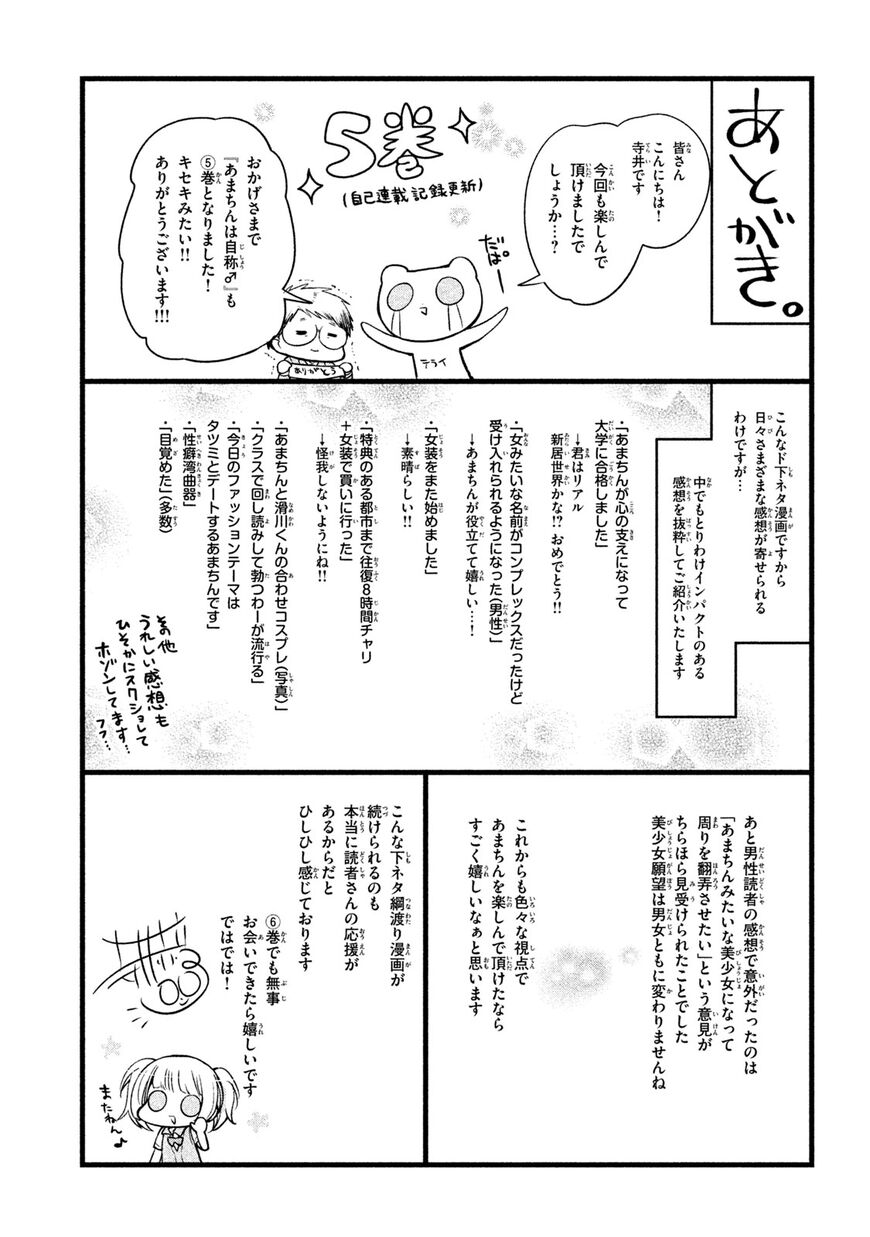 あとがき。
皆さん
こんにちは！
寺井です
今回も楽しんで
頂けましたで
しょうか…？
5巻
(自己連載記録更新)
だばー
テライ
おかげさまで
『あまちんは自称♂』も
⑤巻となりました！
キセキみたい!!
ありがとうございます!!!
ありがとう
こんなド下ネタ漫画ですから
日々さまざまな感想が寄せられる
わけですが…
中でもとりわけインパクトのある
感想を抜粋してご紹介いたします
・「あまちんが心の支えになって
大学に合格しました」
→君はリアル
新居世界かな!? おめでとう!!
・「女みたいな名前がコンプレックスだったけど
受け入れられるようになった(男性)」
→あまちんが役立てて嬉しい…！
・「女装をまた始めました」
→素晴らしい!!
・「特典のある都市まで往復8時間チャリ
＋女装で買いに行った」
→怪我しないようにね!!
・「あまちんと滑川くんの合わせコスプレ(写真)」
・「クラスで回し読みして勃つわーが流行る」
・「今日のファッションテーマは
タツミとデートするあまちんです」
・「性癖湾曲器」
・「目覚めた」(多数)
その他
うれしい感想も
ひそかにスクショして
ホゾンしてます…
フフ…
あと男性読者の感想で意外だったのは
「あまちんみたいな美少女になって
周りを翻弄させたい」という意見が
ちらほら見受けられたことでした
美少女願望は男女ともに変わりませんね
これからも色々な視点で
あまちんを楽しんで頂けたなら
すごく嬉しいなぁと思います
こんな下ネタ綱渡り漫画が
続けられるのも
本当に読者さんの応援が
あるからだと
ひしひし感じております
⑥巻でも無事
お会いできたら嬉しいです
ではでは！
またねん♪